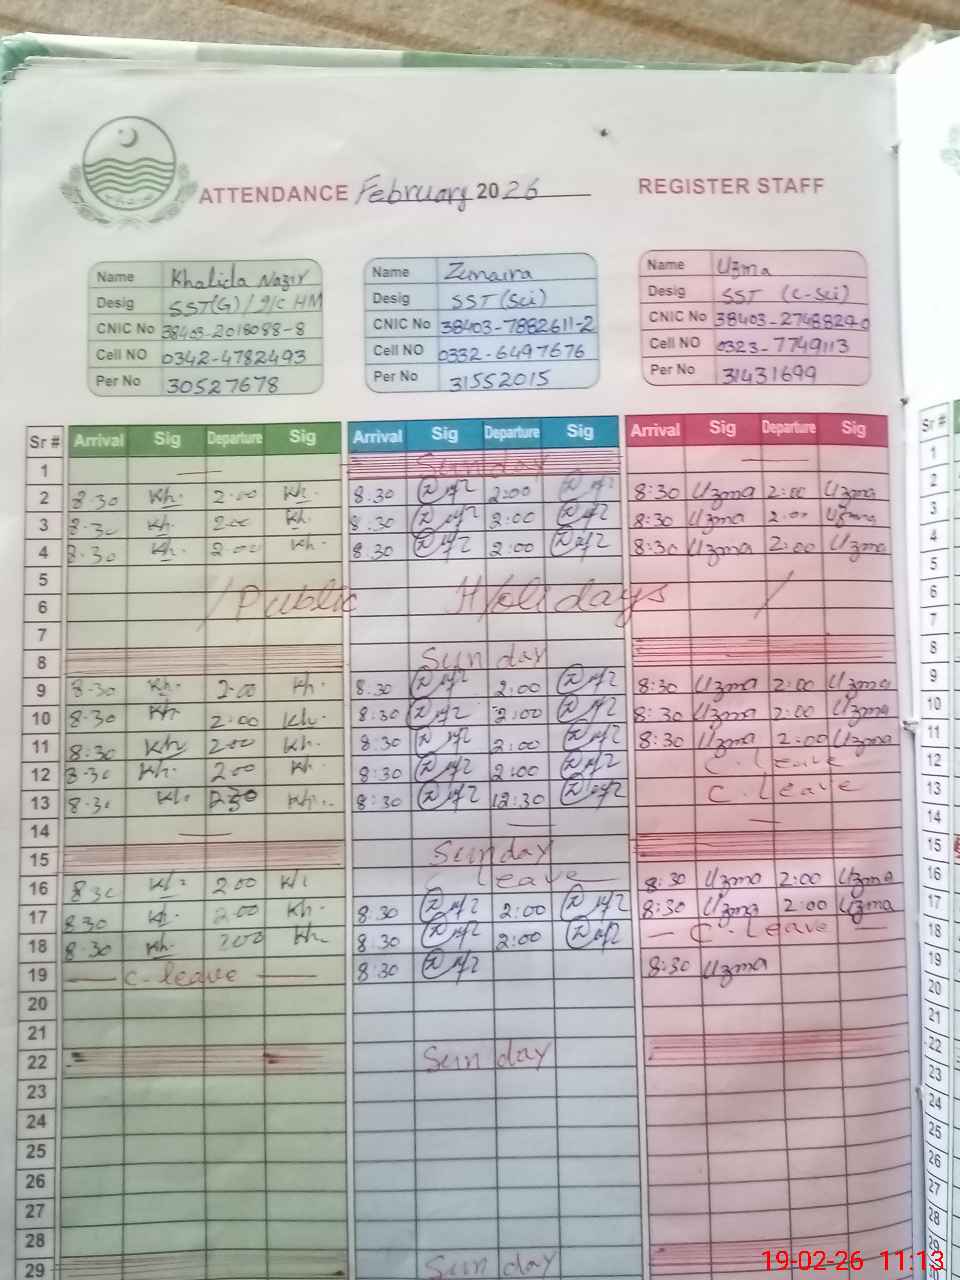 ATTENDANCE February 2026 REGISTER STAFF
Name Khalida Nazir Name Zunaira Name Uzma
Desig SST(G)/I/C HM Desig SST (Sci) Desig SST (C-Sci)
CNIC No 38403-2018098-8 CNIC No 38403-7882611-2 CNIC No 38403-2748829-0
Cell NO 0342-4782493 Cell NO 0332-6497676 Cell NO 0323-7749113
Per No 30527678 Per No 31552015 Per No 31431699
Sr # Arrival Sig Departure Sig Arrival Sig Departure Sig Arrival Sig Departure Sig Sr #
1 Sunday 1
2 8:30 Kh. 2:00 Kh. 8:30 2:00 8:30 Uzma 2:00 Uzma 2
3 8:30 Kh. 2:00 Kh. 8:30 2:00 8:30 Uzma 2:00 Uzma 3
4 8:30 Kh. 2:00 Kh. 8:30 2:00 8:30 Uzma 2:00 Uzma 4
5 5
6 / Public Holidays / 6
7 7
8 Sunday 8
9 8:30 Kh. 2:00 Kh. 8:30 2:00 8:30 Uzma 2:00 Uzma 9
10 8:30 Kh 2:00 Kh. 8:30 2:00 8:30 Uzma 2:00 Uzma 10
11 8:30 Kh 2:00 Kh. 8:30 2:00 8:30 Uzma 2:00 Uzma 11
12 8:30 Kh. 2:00 Kh. 8:30 2:00 C. leave 12
13 8:30 Kh. Kh. 8:30 12:30 C. leave 13
14 14
15 Sunday 15
16 8:30 Kh. 2:00 Kh leave 8:30 Uzma 2:00 Uzma 16
17 8:30 Kh. 2:00 Kh. 8:30 2:00 8:30 Uzma 2:00 Uzma 17
18 8:30 Kh. 2:00 Kh 8:30 2:00 — C. Leave — 18
19 — C-leave — 8:30 8:30 Uzma 19
20 20
21 21
22 Sunday 22
23 23
24 24
25 25
26 26
27 27
28 28
29 Sunday 29
19-02-26 11:13